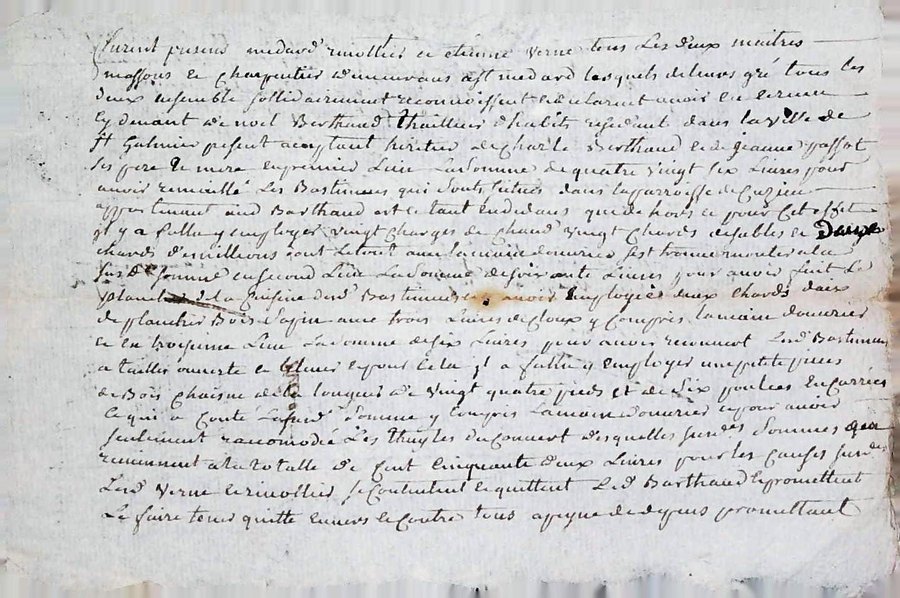 furent presens medard rmollier et etienne verne tous Les deux maitres
massons et Charpentier demeurans a St medard Lesquels de leurs gré tous Les
deux ensemble sollidairement reconnoissent et declarent avoir eu et receu
Cy devant de noel Barthaud Thaillieur d'habits residant dans La ville de
St Galmier present acceptant heretier de Charle Barthaud et de jeanne passot
ses pere et mere en premier Lieu La somme de quatre vingt six Livres pour
avoir remuraillé Les Bastiments qui sont scitués dans La parroisse de Cuzieu
appartenant aud Barthaud et ce tant en dedans que de hors et pour Cet effet
il y a fallu y employer vingt charges de chaud vingt Chards de sables et Deux
chards de moillions dont Le tout avec La main d'ouvrier s'est trouvé monter a la
susd somme en second Lieu La somme de soixante Livres pour avoir fait Le
planché de La Cuisine desd Bastiments et avoir Employés deux Chards d'aix
de plancher Bois Sapin avec trois Livres de Cloux y Compris La main d'ouvrier
et en troizieme Lieu La somme de six Livres pour avoir recouvert Lesd Bastiments
a taille ouverte et pour cela il a fallu y employer une petite piece
de Bois Chaisne de la longueur de vingt quatre pieds et de six poulces en Carrés
Ce qui a Couté La susd Somme y Compris La main d'ouvrier et pour avoir
seulement racomodé Les Thuyles du Couvert desquelles susdes Sommes qui
reviennent a la totalle de Cent Cinquante deux Livres pour les Causes susdes
Lesd Verne et rimollier se Contentent et quittent Led Barthaud et promettent
Le faire tenir quitte envers et Contre tous a peyne de depens promettant